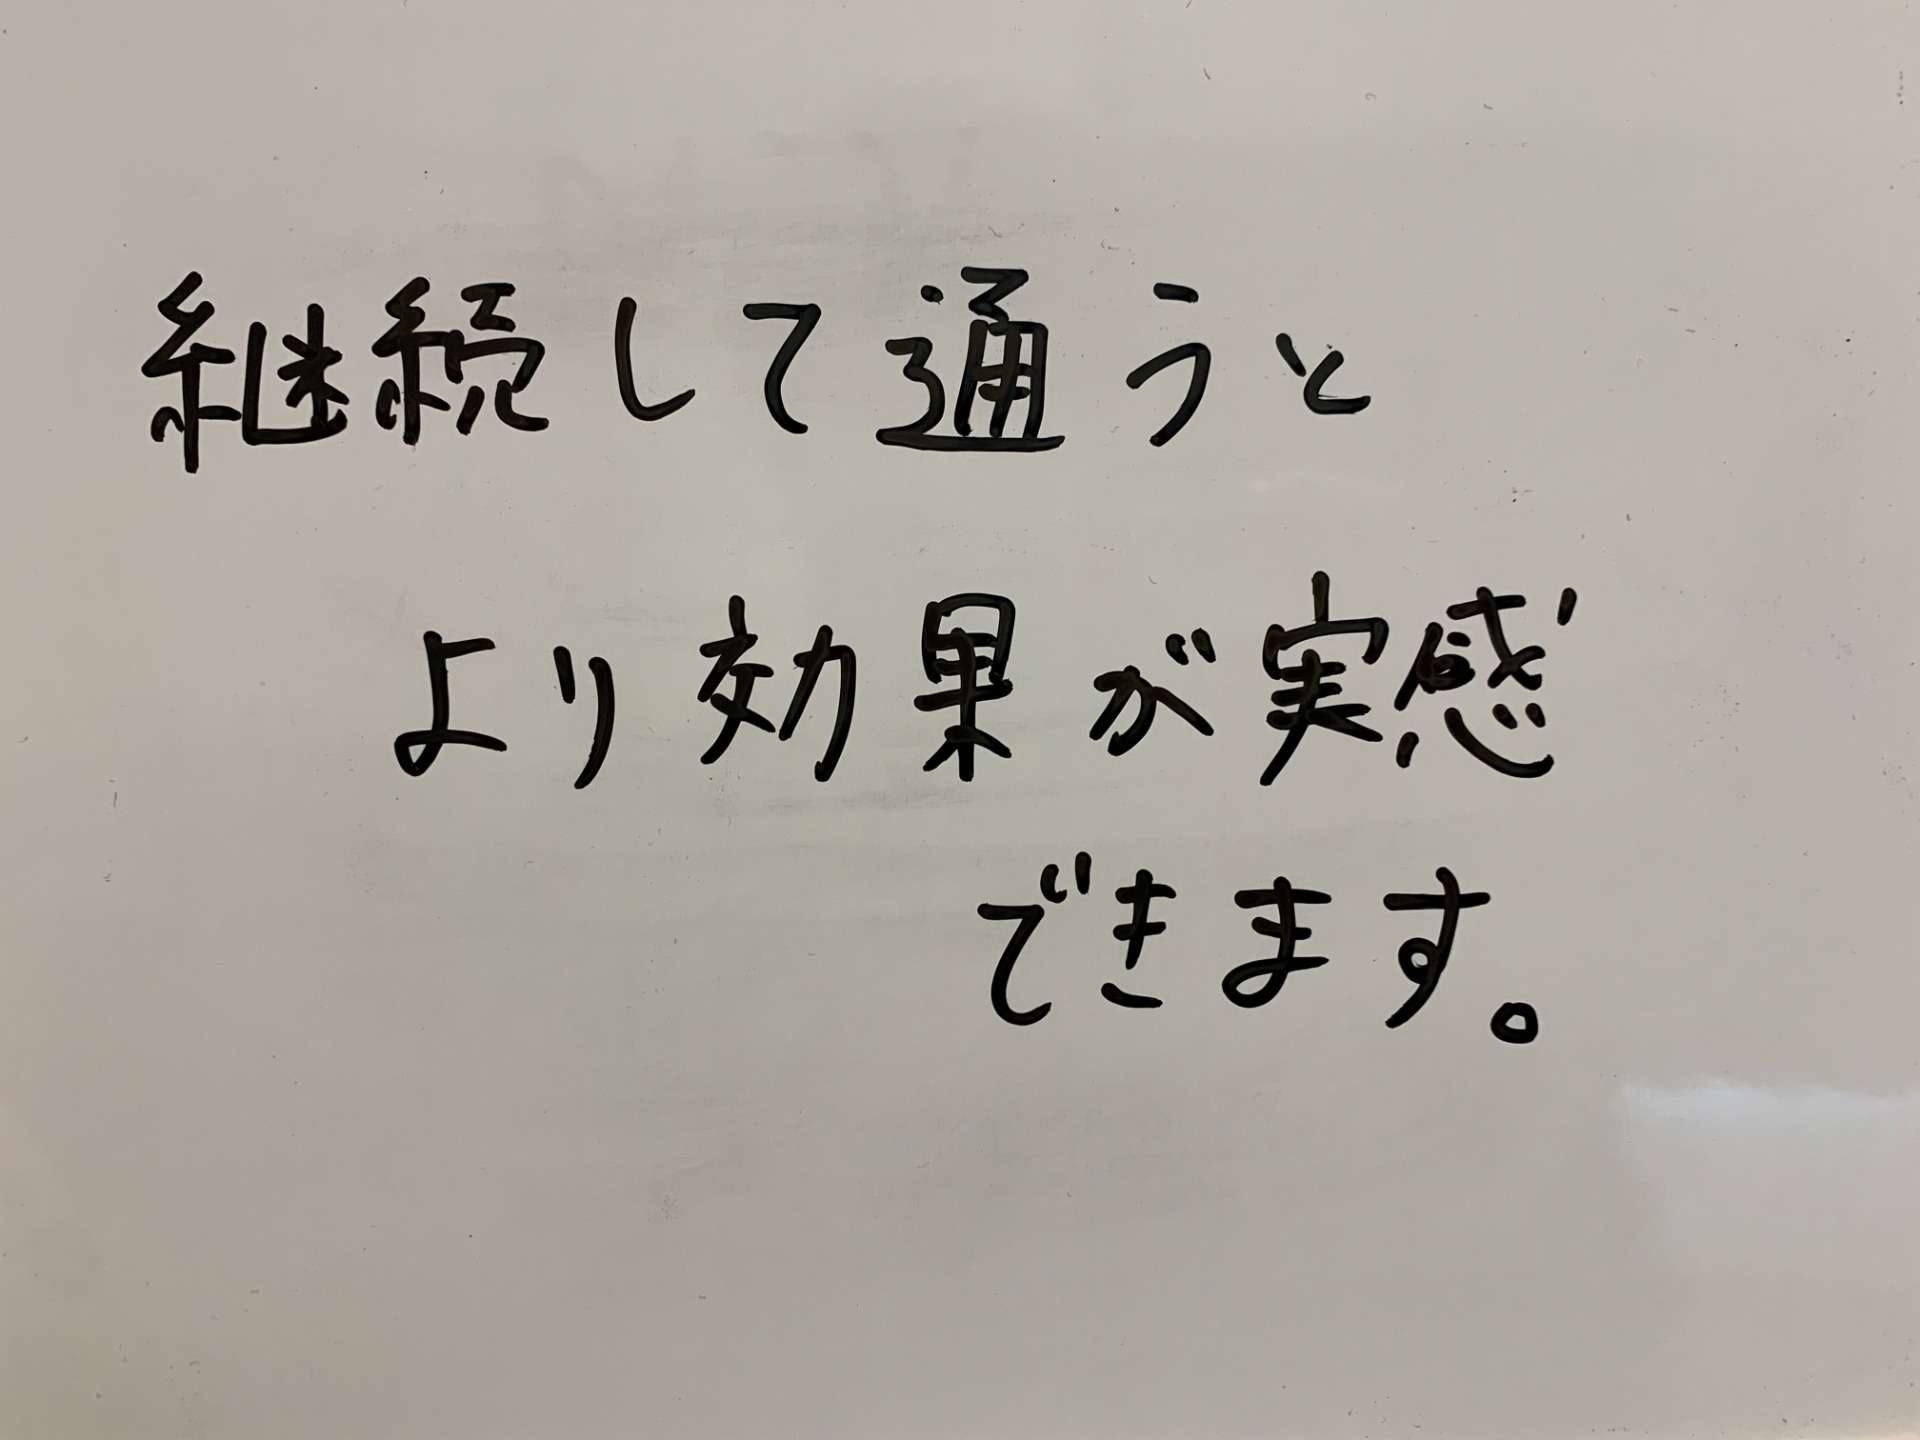 継続して通うと
より効果が実感
できます。